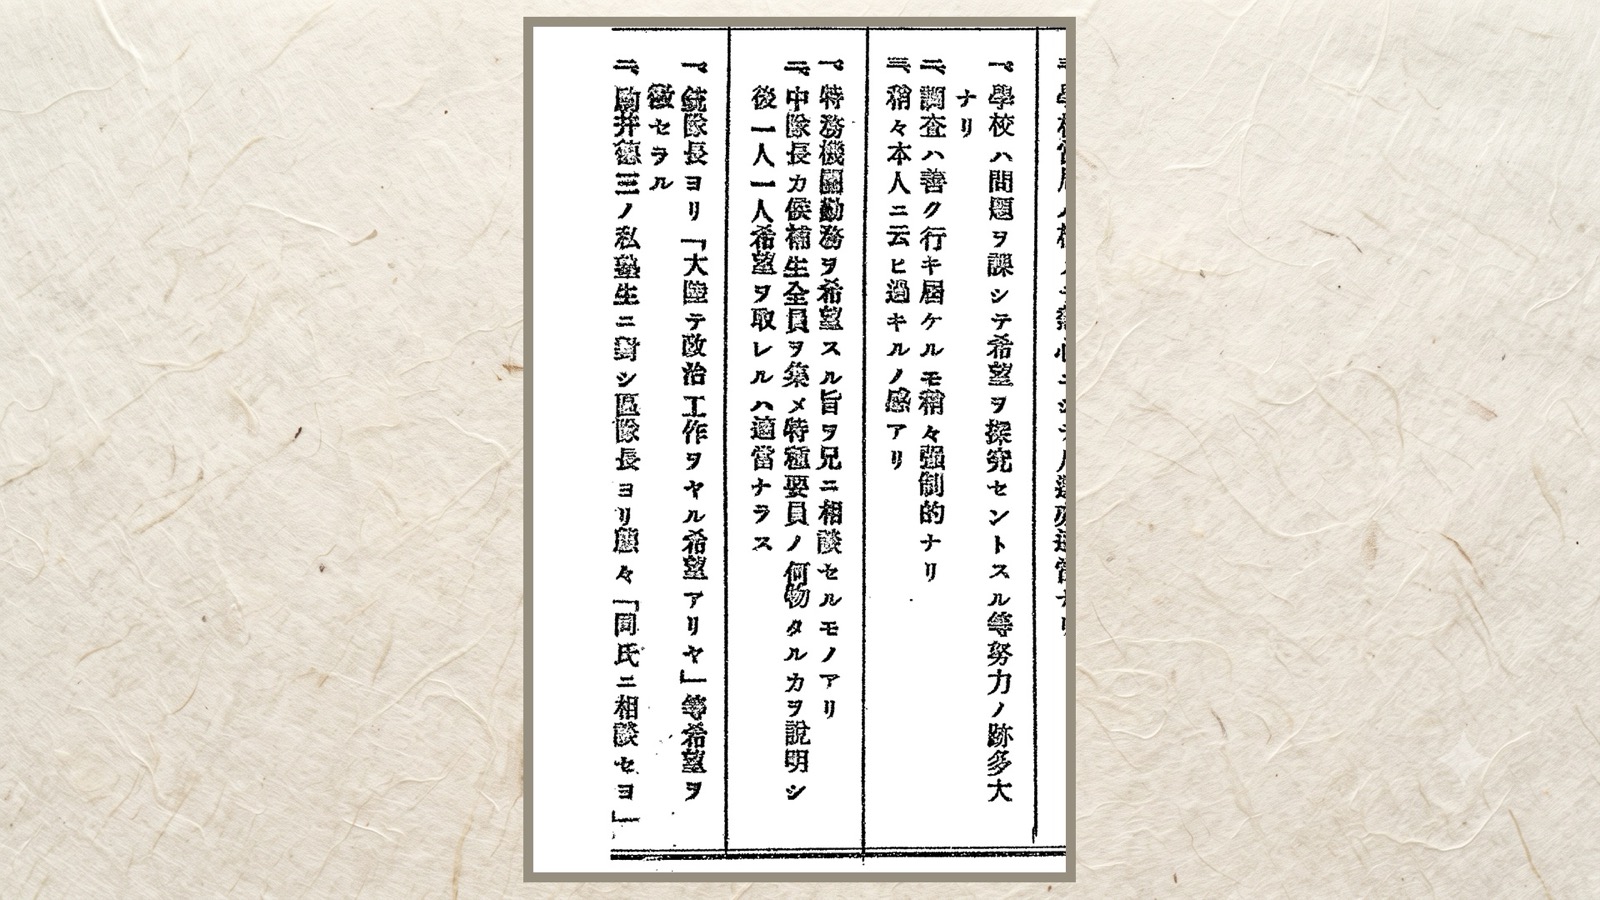 一、學校ハ問題ヲ課シテ希望ヲ探究セントスル等努力ノ跡多大
ナリ
二、調査ハ善ク行キ屆ケルモ稍々强制的ナリ
三、稍々本人ニ云ヒ過キルノ感アリ
一、特務機關勤務ヲ希望スル旨ヲ兄ニ相談セルモノアリ
二、中隊長カ候補生全員ヲ集メ特種要員ノ何物タルカヲ說明シ
後一人一人希望ヲ取レルハ適當ナラス
一、銃隊長ヨリ「大陸テ政治工作ヲヤル希望アリヤ」等希望ヲ
徵セラル
二、駒井德三ノ私塾生ニ對シ區隊長ヨリ態々「同氏ニ相談セヨ」